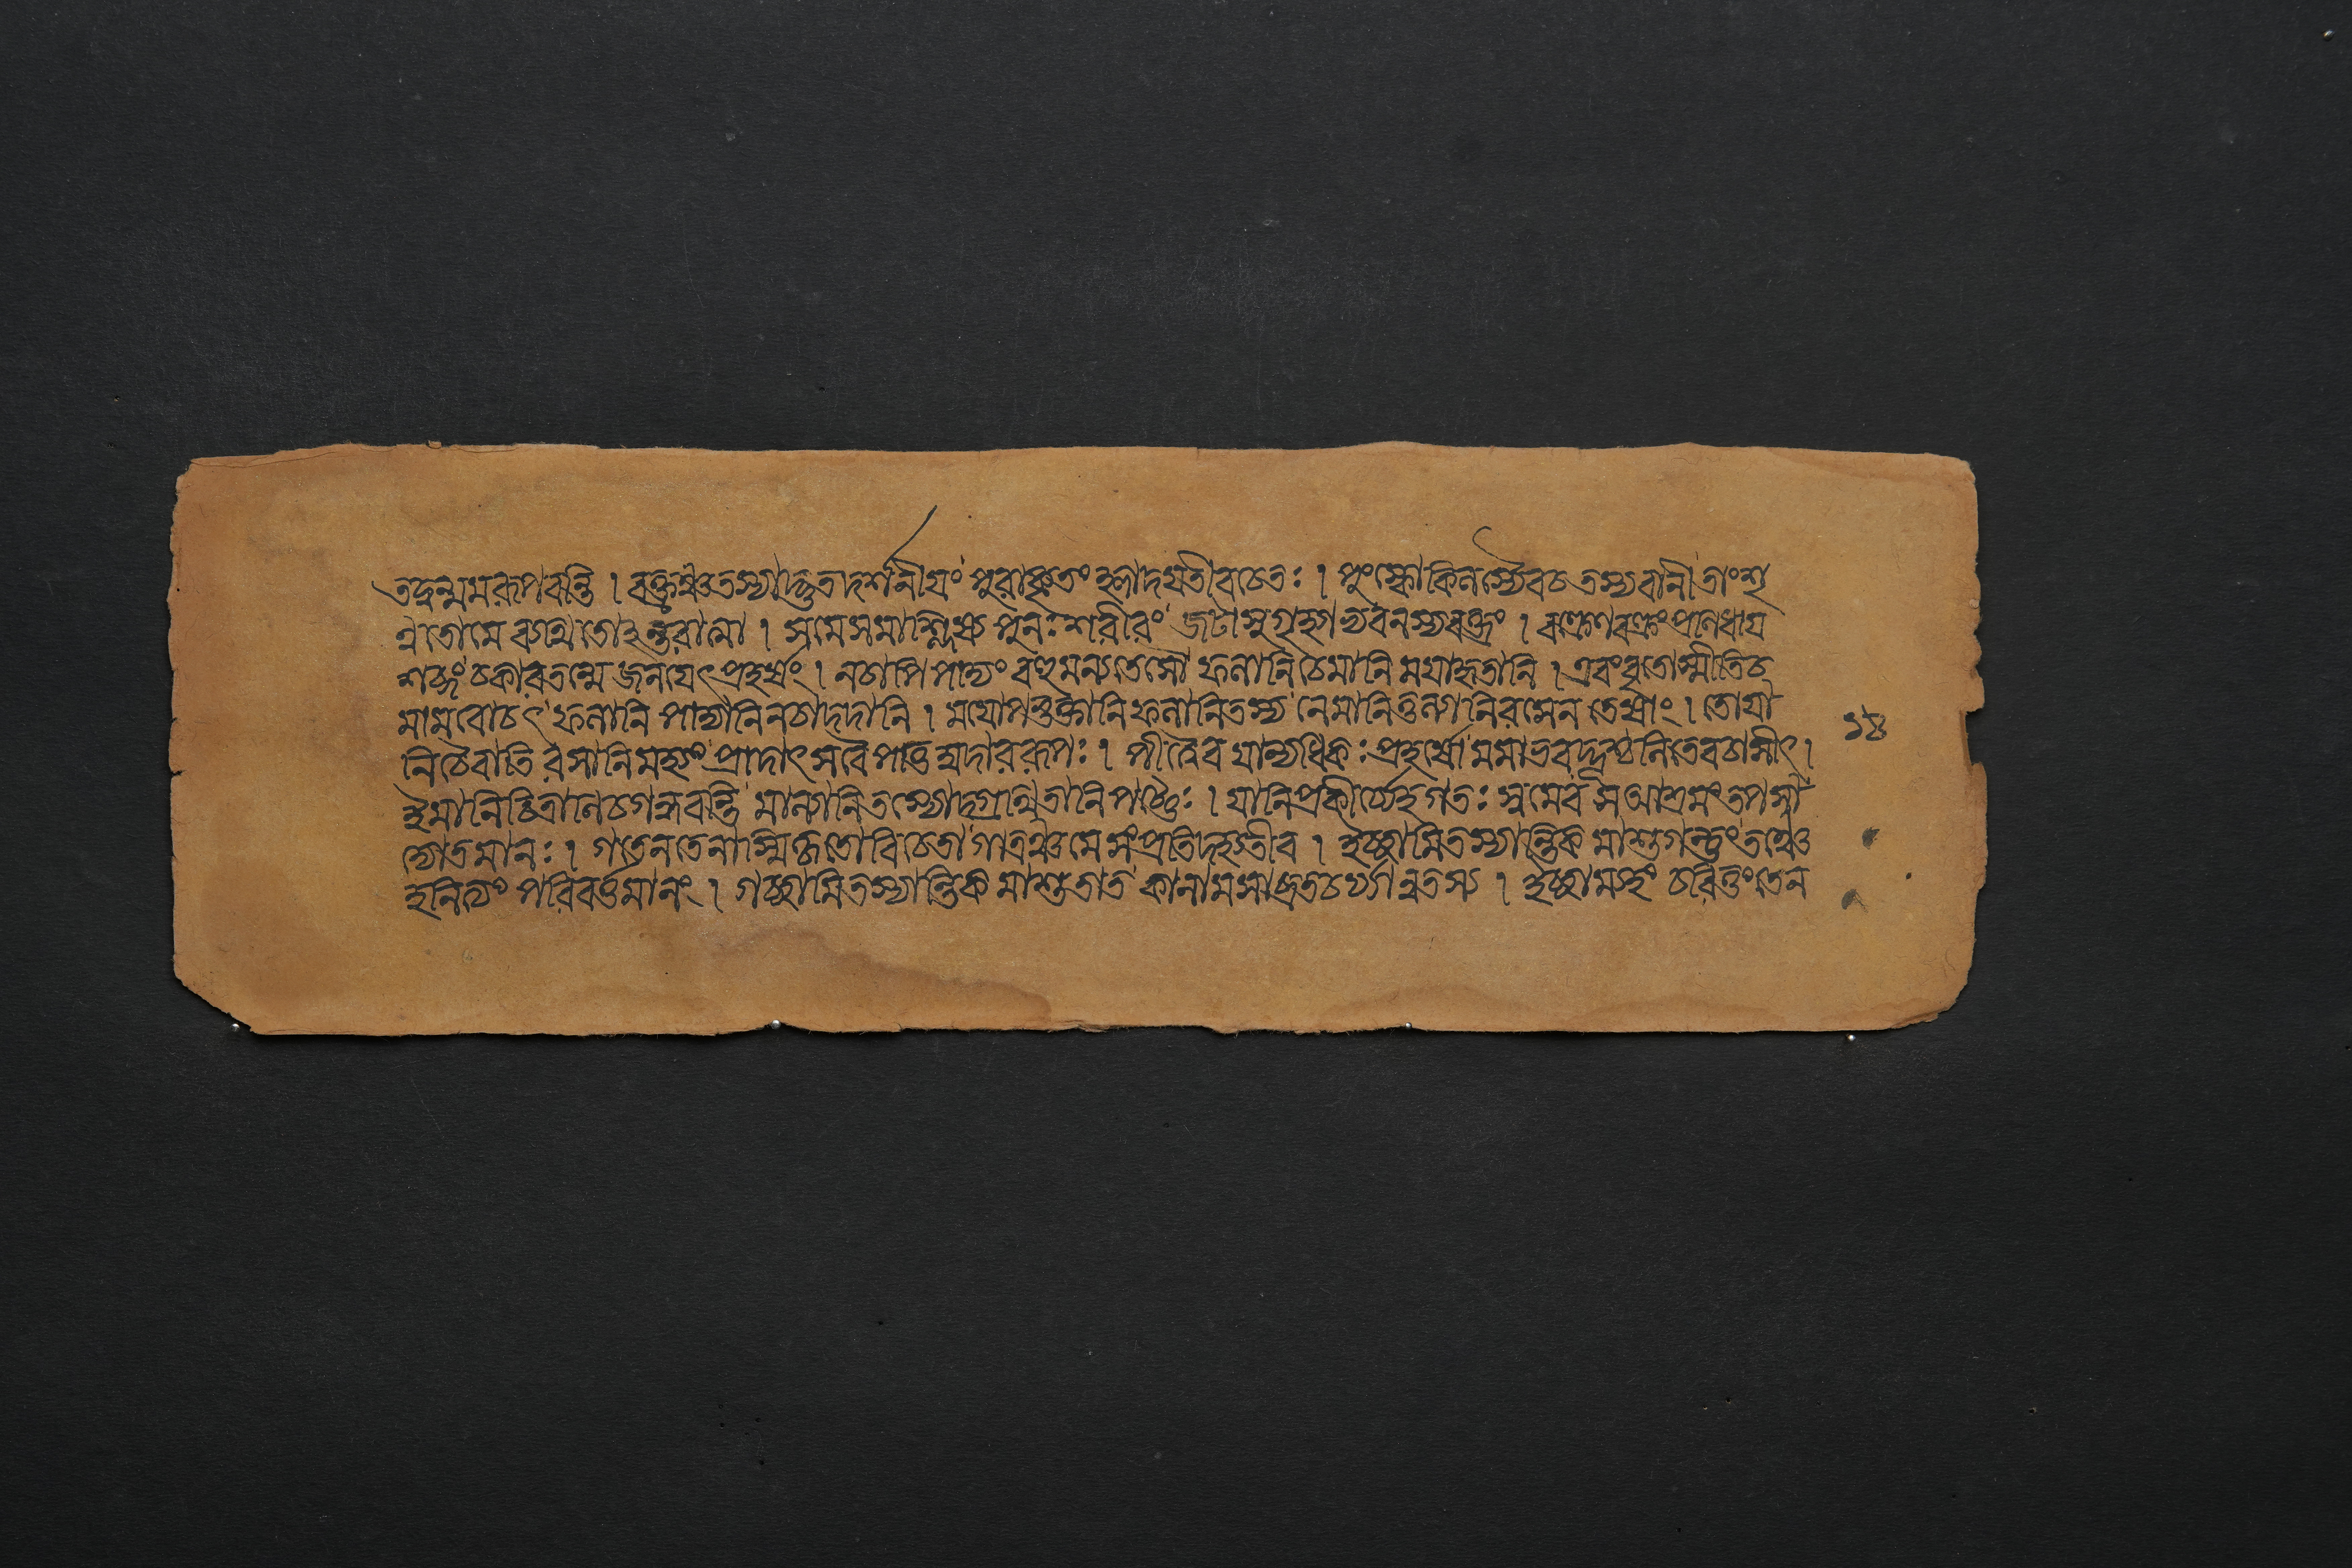 তদ্বন্মমরূপবন্তি । বক্ত্রঞ্চতস্যাদ্ভুতদর্শনীয়ং পুরাকৃতং হ্লাদয়তীবচেতঃ । পুংস্কোকিলস্যৈবচ তস্যবানী তাংশৃ
ন্বতোমে ব্যথিতোহন্তরাত্মা । সমেসমাশ্লিষ্য পুনঃ শরীরং জটাসুগৃহ্যাভ্যবনম্যবক্ত্রং । বক্ত্রেণবক্ত্রংপ্রণিধায়
শব্দং চকারতন্মে জনয়েৎপ্রহর্ষং । নচাপি পাদ্যং বহুমন্যতেসৌ ফলানি চেমানি ময়াহৃতানি । এবংব্রতোস্মীতিচ
মামবোচৎ ফলানি পান্যানিনচাদদানি । ময়োপভুক্তানি ফলানিতস্য নেমানিতুল্যানিরসেন তেষাং । তোয়া
নিচৈবাতিরসানিমহ্যং প্রাদাৎ সবৈ পাতুমুদাররূপঃ । পীত্বৈব যান্যধিকঃ প্রহর্ষো মমাভবদ্ভূশ্চলিতেবচাসীৎ ।
ইমানিচিত্রানিচগন্ধবন্তি মাল্যানিতস্যোদ্গ্রথিতানিপট্টৈঃ । যানিপ্রকীর্য্যেহগতঃ স্বমেব সআশ্রমংতপসা
দ্যোতমানঃ । গতেনতেনাস্মিকৃতোবিচেতা গাত্রঞ্চমে সংপ্রতিদহ্যতীব । ইচ্ছামিতস্যান্তিকমাশুগন্তুং তঞ্চে
হনিত্যং পরিবর্ত্তমানং । গচ্ছামিতস্যান্তিকমাশুতাত কানামসাব্রতচর্য্যানুতস্য । ইচ্ছাম্যহং চরিতুং তেন
১৪